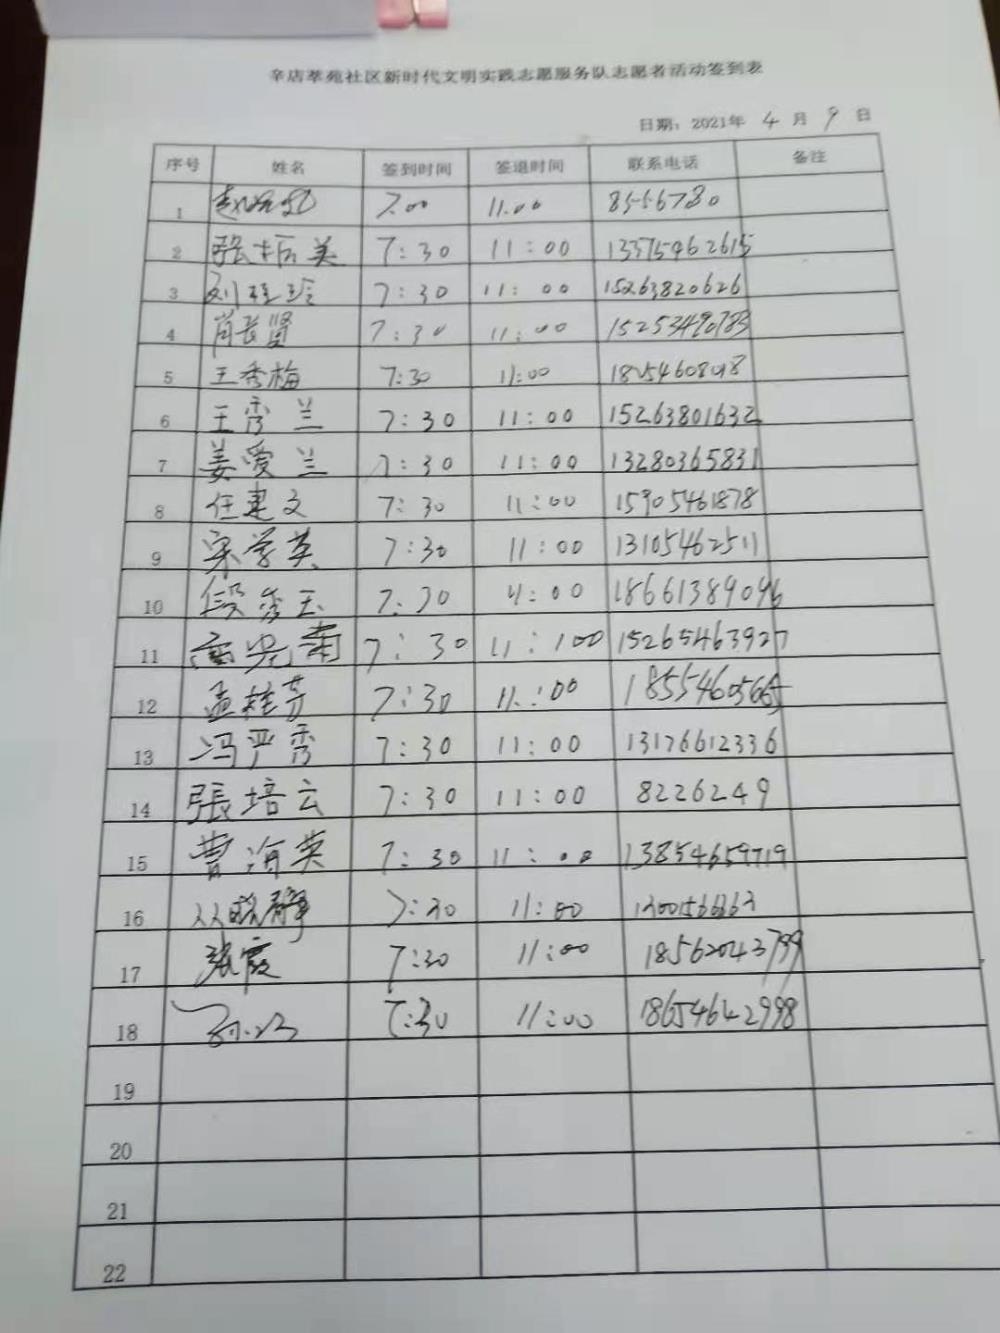 辛店萃苑社区新时代文明实践志愿服务队志愿者活动签到表
日期：2021年 4 月 9 日
序号 姓名 签到时间 签退时间 联系电话 备注
1 7.00 11.00 8556780
2 张 美 7:30 11:00 13375462615
3 刘 7:30 11:00 15263820626
4 肖长贤 7:30 11:00 15253490783
5 王秀梅 7:30 11:00
6 王秀兰 7:30 11:00 15263801632
7 姜爱兰 7:30 11:00 13280365831
8 任建文 7:30 11:00 15905461878
9 宋学英 7:30 11:00 13105462511
10 段秀玉 7:30 11:00 18661389096
11 7:30 11:100 15265463927
12 孟桂芳 7:30 11:00 18554605665
13 冯严秀 7:30 11:00 13176612336
14 張培云 7:30 11:00 8226249
15 曹海英 7:30 11:00 13854659719
16 丛晓静 7:30 11:00
17 张霞 7:30 11:00 18562043799
18 7:30 11:00 18654642998
19
20
21
22